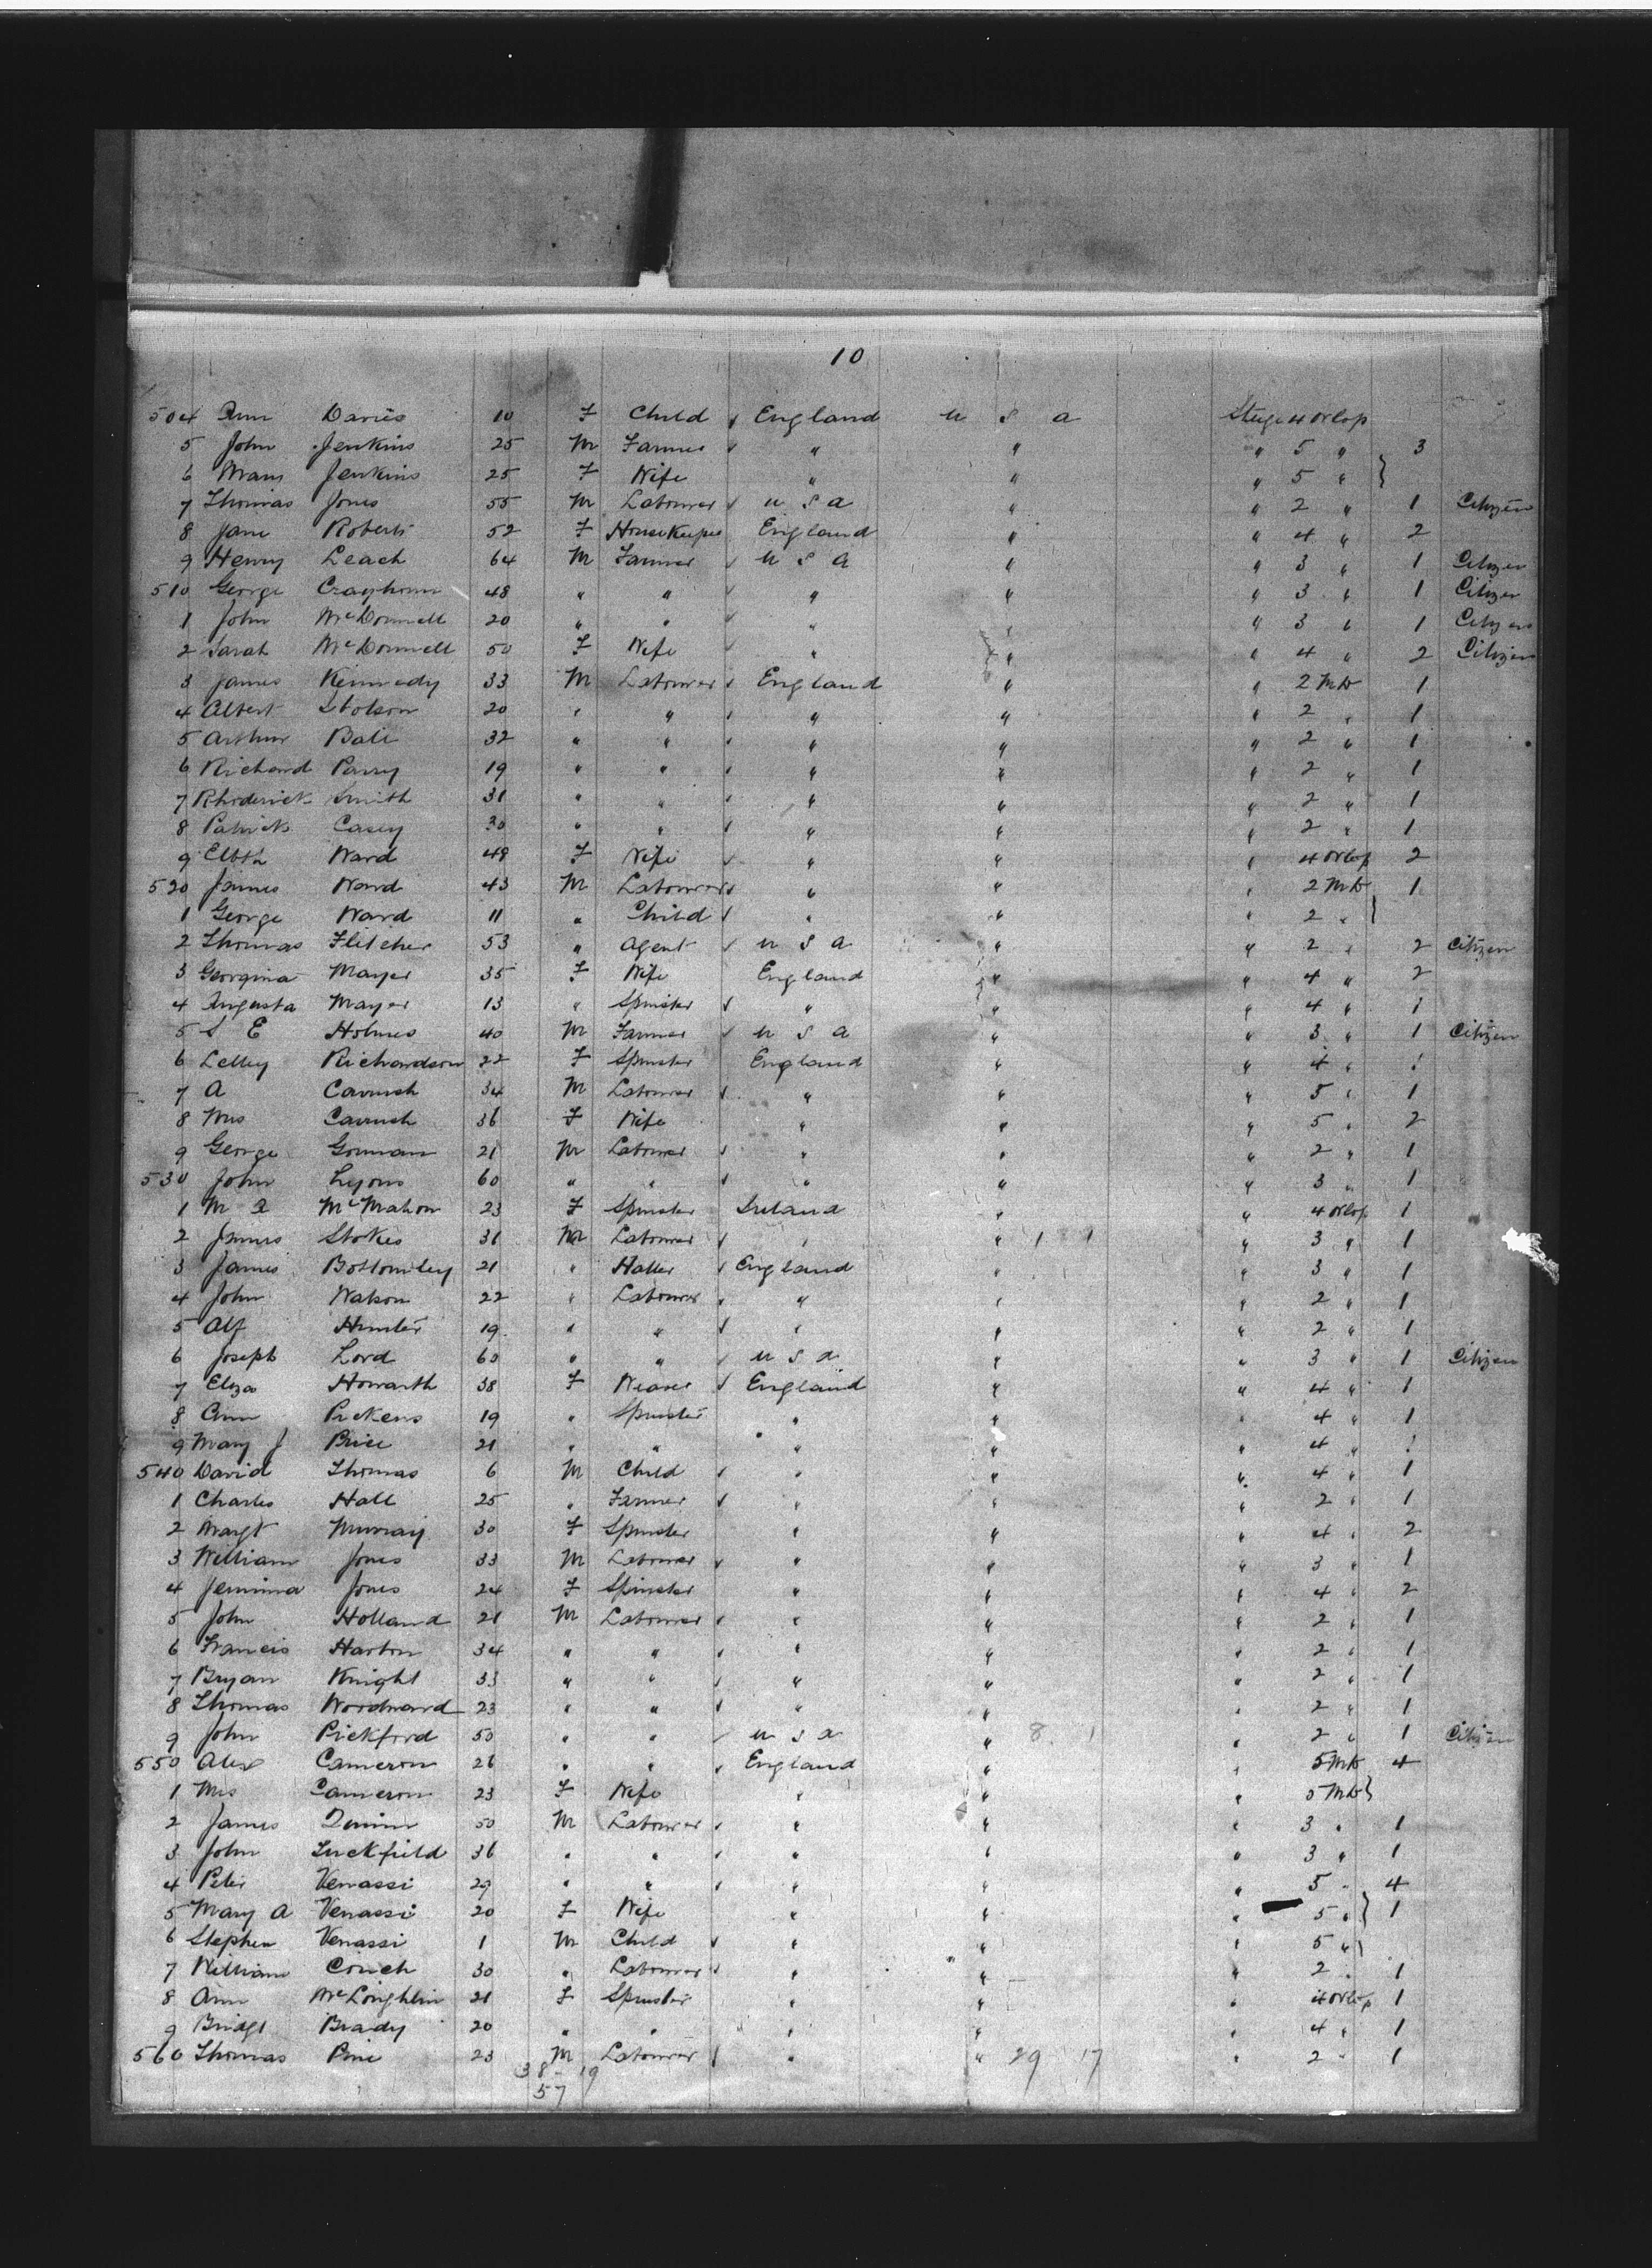 10
504 Ann Davies 10 F Child England U S A Stuge 4 Orlop
5 John Jenkins 25 M Farmer " " " 5 " 3
6 Mary Jenkins 25 F Wife " " " 5 "
7 Thomas Jones 55 M Labourer U S A " " 2 " 1 Citizen
8 Jane Roberts 52 F HouseKeeper England " " 4 " 2
9 Henry Leach 64 M Farmer U S A " " 3 " 1 Citizen
510 George 48 " " " " " 3 " 1 Citizen
1 John McDonnell 20 " " " " " 3 " 1 Citizen
2 Sarah McDonnell 50 F Wife " " " 4 " 2 Citizen
3 James Kennedy 33 M Labourer England " " 2 MD 1
4 Albert 20 " " " " " 2 " 1
5 Arthur Ball 32 " " " " " 2 " 1
6 Richard Parry 19 " " " " " 2 " 1
7 Rhoderick Smith 31 " " " " " 2 " 1
8 Patrick Casey 30 " " " " " 2 " 1
9 Elbth Ward 48 F Wife " " " 4 Orlop 2
520 James Ward 43 M Labourer " " " 2 MD 1
1 George Ward 11 " Child " " " 2 "
2 Thomas Flitcher 53 " Agent U S A " " 2 " 2 Citizen
3 Georgina Mayer 35 F Wife England " " 4 " 2
4 Augusta Mayer 13 " Spinster " " " 4 " 1
5 S E Holmes 40 M Farmer U S A " " 3 " 1 Citizen
6 Lelley Richardson 22 F Spinster England " " 4 " 1
7 A 34 M Labourer " " " 5 " 1
8 Mrs 36 F Wife " " " 5 " 2
9 George Gorman 21 M Labourer " " " 2 " 1
530 John Lyons 60 " " " " " 3 " 1
1 M A McMahon 23 F Spinster Ireland " " 4 Orlop 1
2 James Stokes 31 M Labourer " " 1 1 " 3 " 1
3 James Bottomley 21 " Hatter England " " 3 " 1
4 John Watson 22 " Labourer " " " 2 " 1
5 Alf Hunter 19 " " " " " 2 " 1
6 Joseph Lord 60 " " U S A " " 3 " 1 Citizen
7 Eliza Howarth 38 F Weaver England " " 4 " 1
8 Ann Pickens 19 " Spinster " " " 4 " 1
9 Mary J Price 21 " " " " " 4 " 1
540 David Thomas 6 M Child " " " 4 " 1
1 Charles Hall 25 " Farmer " " " 2 " 1
2 Margt Murray 30 F Spinster " " " 4 " 2
3 William Jones 33 M Labourer " " " 3 " 1
4 Jemima Jones 24 F Spinster " " " 4 " 2
5 John Holland 21 M Labourer " " " 2 " 1
6 Francis Harton 34 " " " " " 2 " 1
7 Bryan Knight 33 " " " " " 2 " 1
8 Thomas Woodward 23 " " " " " 2 " 1
9 John Pickford 50 " " U S A " 8 1 " 2 " 1 Citizen
550 Alex Cameron 26 " " England " " 5 MD 4
1 Mrs Cameron 23 F Wife " " " 5 MD
2 James Quinn 50 M Labourer " " " 3 " 1
3 John Luckfield 36 " " " " " 3 " 1
4 Peter Venassi 29 " " " " " 5 " 4
5 Mary A Venassi 20 F Wife " " " 5 " 1
6 Stephen Venassi 1 M Child " " " 5 "
7 William Couch 30 " Labourer " " " 2 " 1
8 Ann McLoughlin 21 F Spinster " " " 4 Orlop 1
9 Bridgt Brady 20 " " " " " 4 " 1
560 Thomas Pine 23 M Labourer " " 29 17 " 2 " 1
38 - 19
57